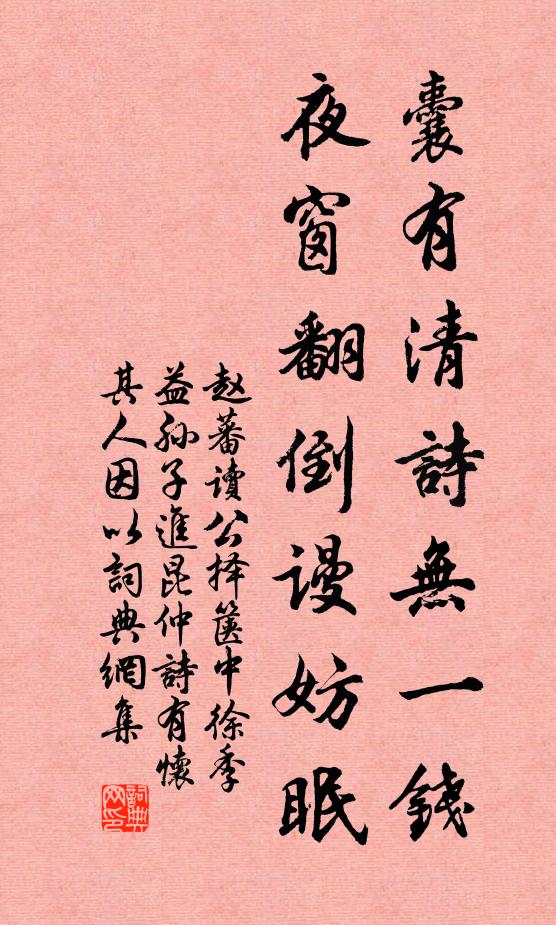 囊有清詩無一錢
夜窗翻倒謾妨眠
赵蕃讀公择箧中徐季
益孙子進昆仲詩有懷
其人因以詞典網集
詞典网印